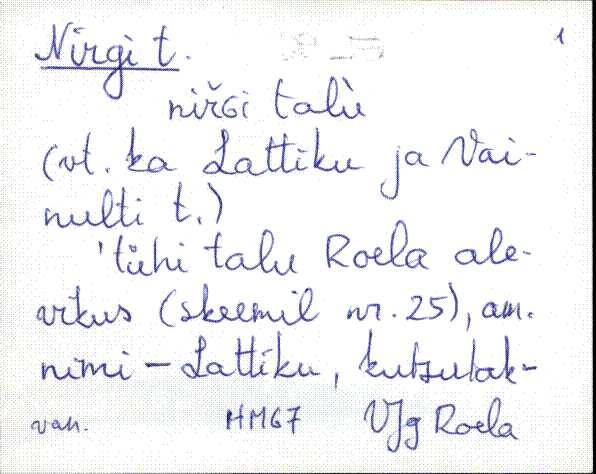 Nirgi t. 1
niřɢi talù
(vt. ka Lattiku ja Vai-
nulti t.)
'tühi talu Roela ale-
vikus (skeemil nr. 25), am.
nimi - Lattiku, kutsutak-
van. HM67 VJg Roela